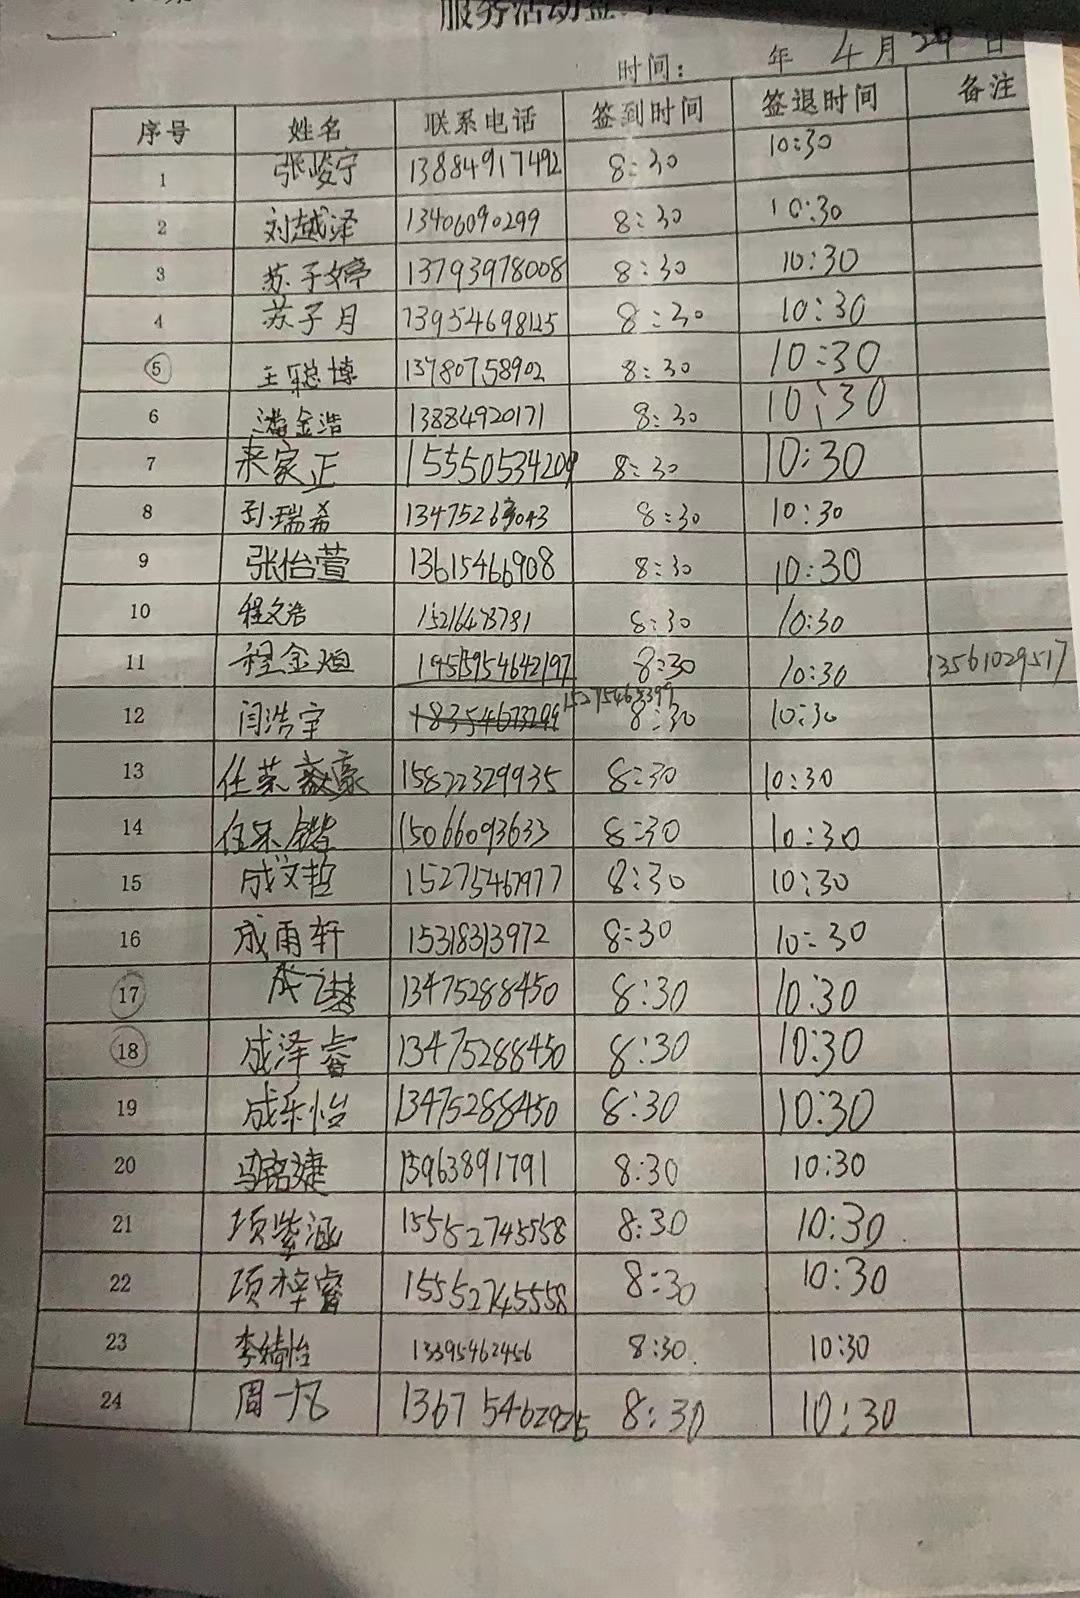 服务活动签
时间： 年 4月 20 日
序号 姓名 联系电话 签到时间 签退时间 备注
1 张峻宁 13884917492 8:30 10:30
2 刘越泽 13406090299 8:30 10:30
3 苏子婷 13793978008 8:30 10:30
4 苏子月 13954698125 8:30 10:30
5 王聪博 13780758902 8:30 10:30
6 潘金浩 13884920171 8:30 10:30
7 来家正 15550534209 8:30 10:30
8 刘瑞希 8:30 10:30
9 张怡萱 13615466908 8:30 10:30
10 程文浩 8:30 10:30
11 程金烜 8:30 10:30 13561029517
12 闫浩宇 18354673299 15275465399 8:30 10:30
13 任 豪 15822329935 8:30 10:30
14 任乐锴 15066093633 8:30 10:30
15 成文哲 15275467977 8:30 10:30
16 成雨轩 15318313972 8:30 10:30
17 成飞 13475288450 8:30 10:30
18 成泽睿 13475288450 8:30 10:30
19 成乐怡 13475288450 8:30 10:30
20 马铭捷 13963891791 8:30 10:30
21 项紫涵 15552745558 8:30 10:30
22 项梓睿 15552745558 8:30 10:30
23 李婧怡 13395462456 8:30 10:30
24 周一凡 8:30 10:30